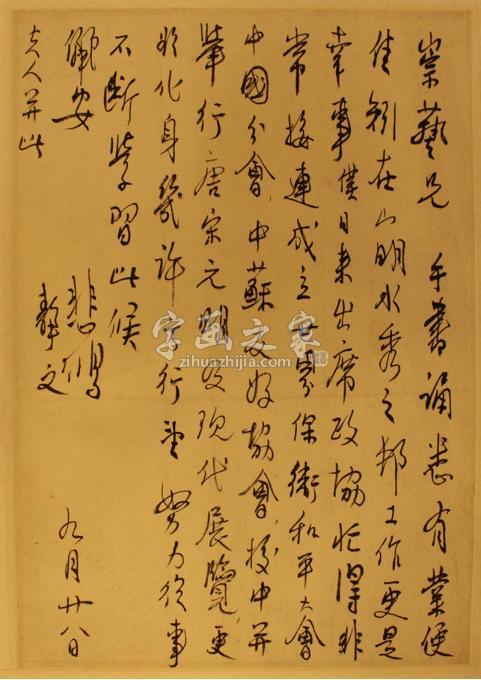 崇藝兄 手書誦悉有業便
佳矧在山明水秀之邦工作更是
幸事僕日來出席政協忙得非
常接連成立世界保衛和平大會
中國分會中蘇友好協會校中并
舉行唐宋元明及現代展覽更
化身幾許 行望努力從事
不斷學習此候
儷安
夫人并此
悲鴻
靜文
九月廿八日
字画之家
zihuazhijia.com